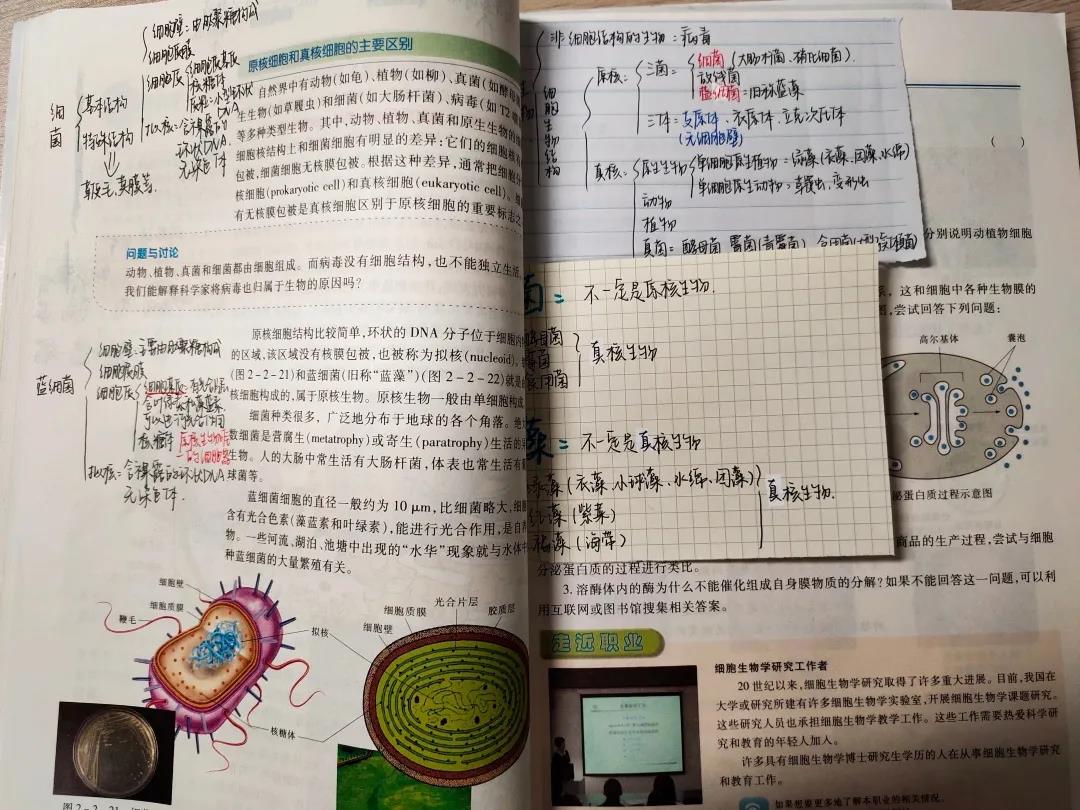 细胞壁:由肽聚糖构成
细胞质膜
细胞质
细胞质基质
核糖体
质粒:小型环状
DNA
细菌
基本结构
特殊结构
拟核:含裸露的
环状DNA
无染色体
鞭毛、荚膜等.
原核细胞和真核细胞的主要区别
自然界中有动物(如龟)、植物(如柳)、真菌(如酵母
生生物(如草履虫)和细菌(如大肠杆菌)、病毒(如T2噬
等多种类型生物。其中,动物、植物、真菌和原生生物的
细胞核结构上和细菌细胞有明显的差异:它们的细胞核
包被,细菌细胞无核膜包被。根据这种差异,通常把细胞
核细胞(prokaryotic cell)和真核细胞(eukaryotic cell)。
有无核膜包被是真核细胞区别于原核细胞的重要标志之
问题与讨论
动物、植物、真菌和细菌都由细胞组成。而病毒没有细胞结构,也不能独立生活,
我们能解释科学家将病毒也归属于生物的原因吗?
原核细胞结构比较简单,环状的DNA分子位于细胞内
的区域,该区域没有核膜包被,也被称为拟核(nucleoid)。
(图2-2-21)和蓝细菌(旧称“蓝藻”)(图2-2-22)就是
核细胞构成的,属于原核生物。原核生物一般由单细胞构成
细菌种类很多,广泛地分布于地球的各个角落。绝
数细菌是营腐生(metatrophy)或寄生(paratrophy)生活的异
生物。人的大肠中常生活有大肠杆菌,体表也常生活有
球菌等。
蓝细菌细胞的直径一般约为10 μm,比细菌略大,细胞
含有光合色素(藻蓝素和叶绿素),能进行光合作用,是自
物。一些河流、湖泊、池塘中出现的“水华”现象就与水体中
种蓝细菌的大量繁殖有关。
蓝细菌
细胞壁:主要由肽聚糖构成
细胞质膜
细胞质
细胞质基质:有光合片层
含叶绿素和藻蓝素
可以进行光合作用
核糖体
拟核:含裸露的环状DNA
无染色体.
细胞壁
细胞质膜
鞭毛
拟核
核糖体
细胞质膜
光合片层
胶质层
细胞壁
图2-2-21
非细胞结构的生物:病毒
细胞生物结构
原核:
三菌:
细菌(大肠杆菌、硝化细菌).
放线菌
蓝细菌:旧称蓝藻
三体:支原体、衣原体、立克次氏体
(无细胞壁)
真核:
原生生物
单细胞原生植物:绿藻(衣藻、团藻、水绵)
单细胞原生动物:草履虫、变形虫
动物
植物
真菌:酵母菌、霉菌(青霉菌)、食用菌
( )
分别说明动植物细胞
这和细胞中各种生物膜的
图,尝试回答下列问题:
高尔基体
囊泡
泌蛋白质过程示意图
菌:不一定是原核生物.
真核生物
藻:不一定是真核生物
绿藻(衣藻、小球藻、水绵、团藻)
红藻(紫菜)
褐藻(海带)
真核生物.
商品的生产过程,尝试与细胞
分泌蛋白质的过程进行类比。
3. 溶酶体内的酶为什么不能催化组成自身膜物质的分解?如果不能回答这一问题,可以利
用互联网或图书馆搜集相关答案。
走近职业
细胞生物学研究工作者
20世纪以来,细胞生物学研究取得了许多重大进展。目前,我国在
大学或研究所建有许多细胞生物学实验室,开展细胞生物学课题研究。
这些研究人员也承担细胞生物学教学工作。这些工作需要热爱科学研
究和教育的年轻人加入。
许多具有细胞生物学博士研究生学历的人在从事细胞生物学研究
和教育工作。
如果想要更多地了解本职业的相关情况,